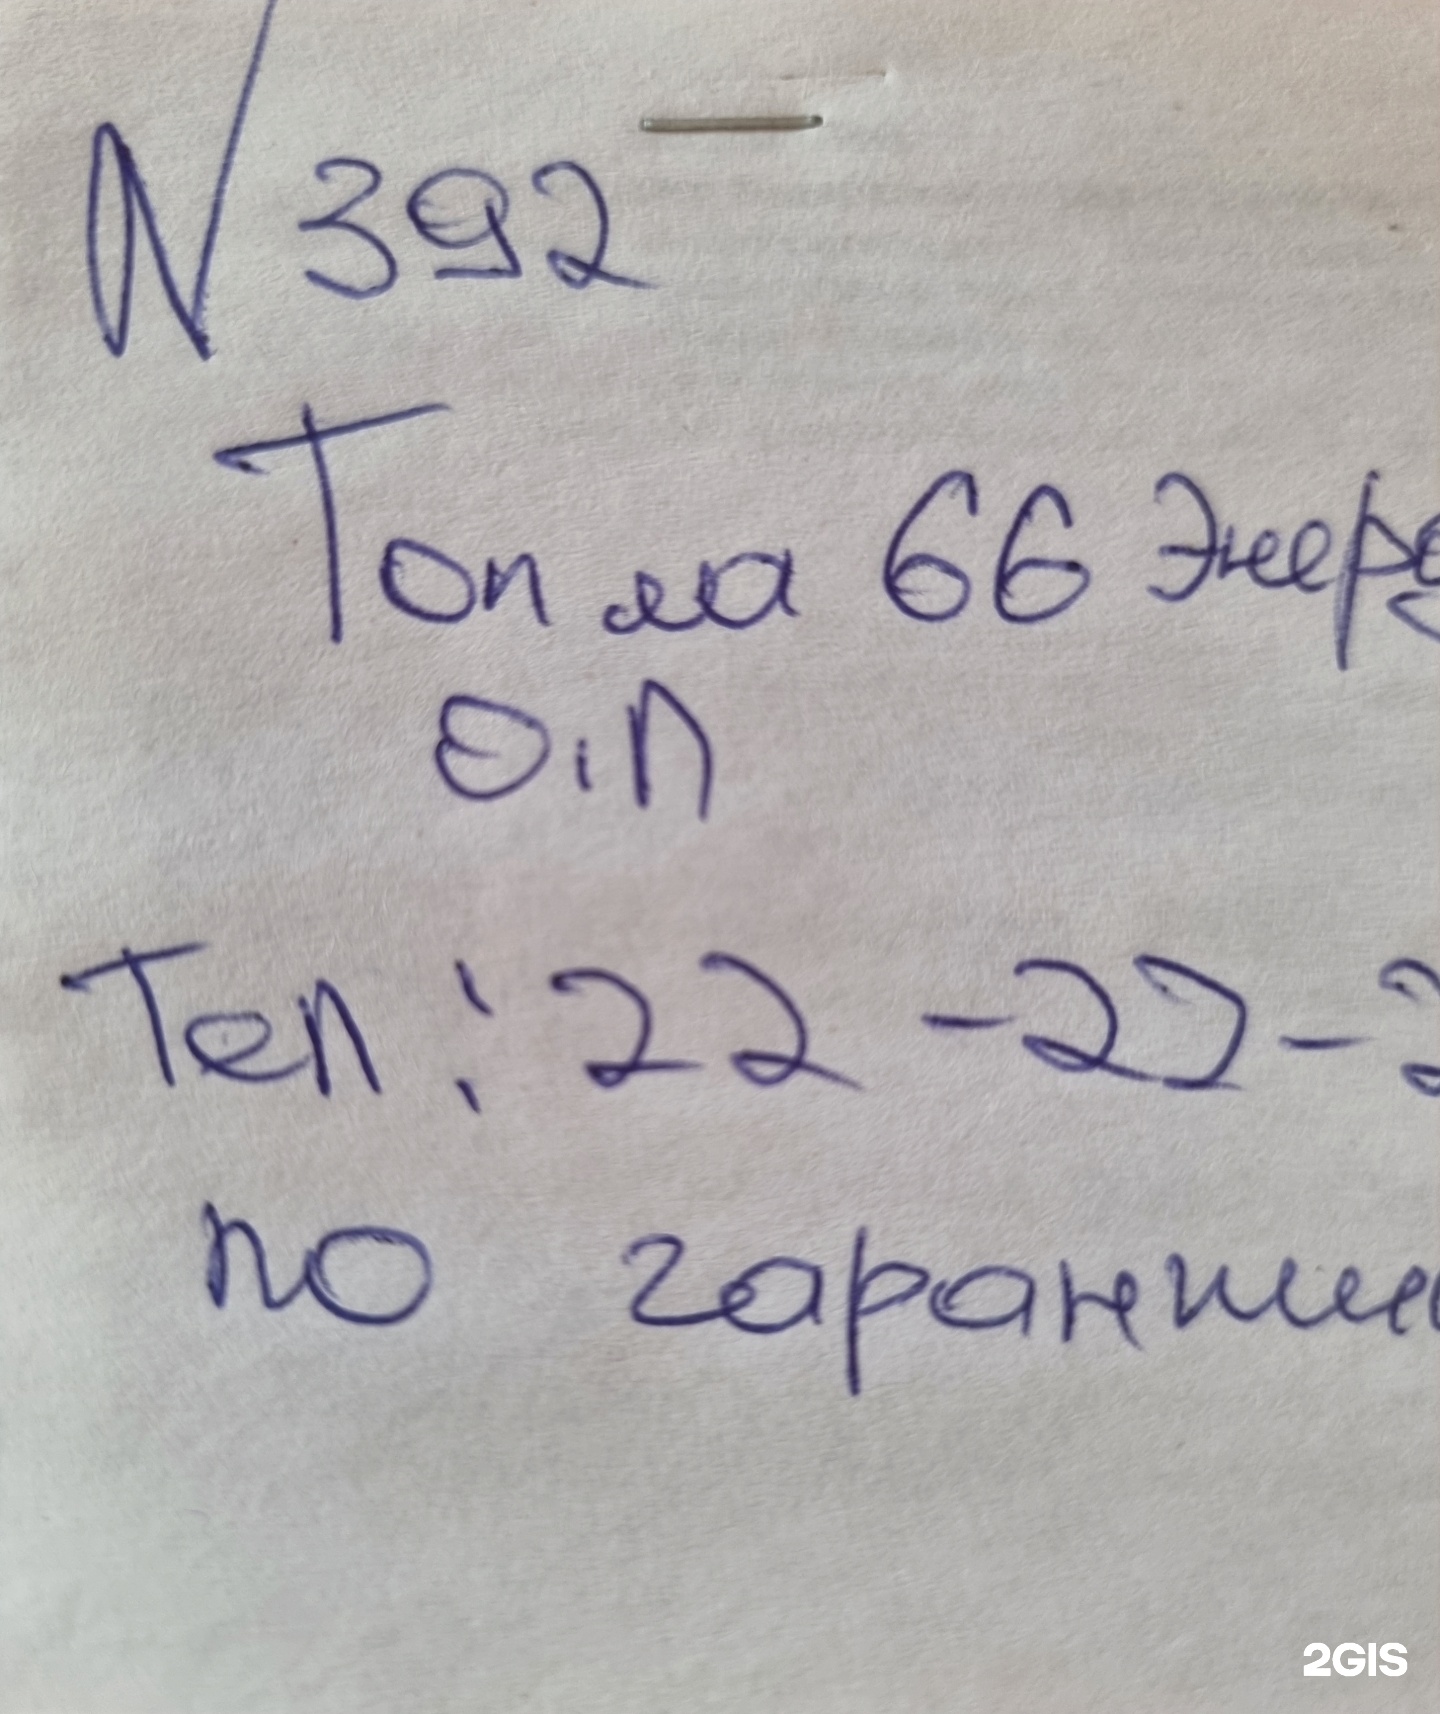 N 392
Топла 66 Энерг
О.П
Тел: 22 - 22 - 2
по гарантии
2GIS